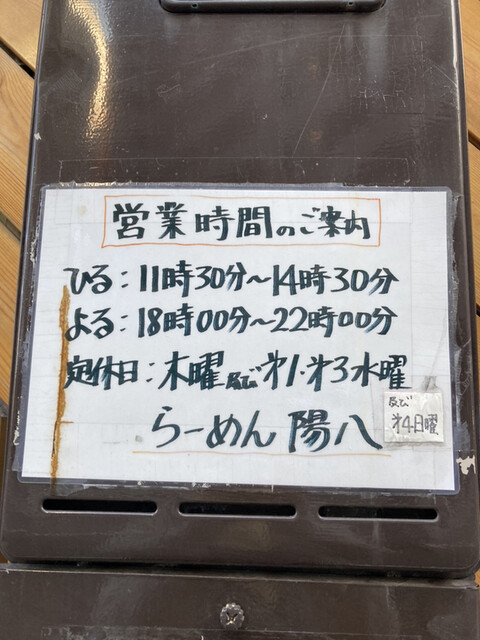 営業時間のご案内
ひる：11時30分～14時30分
よる：18時00分～22時00分
定休日：木曜及び第1・第3水曜
及び
第4日曜
らーめん 陽八